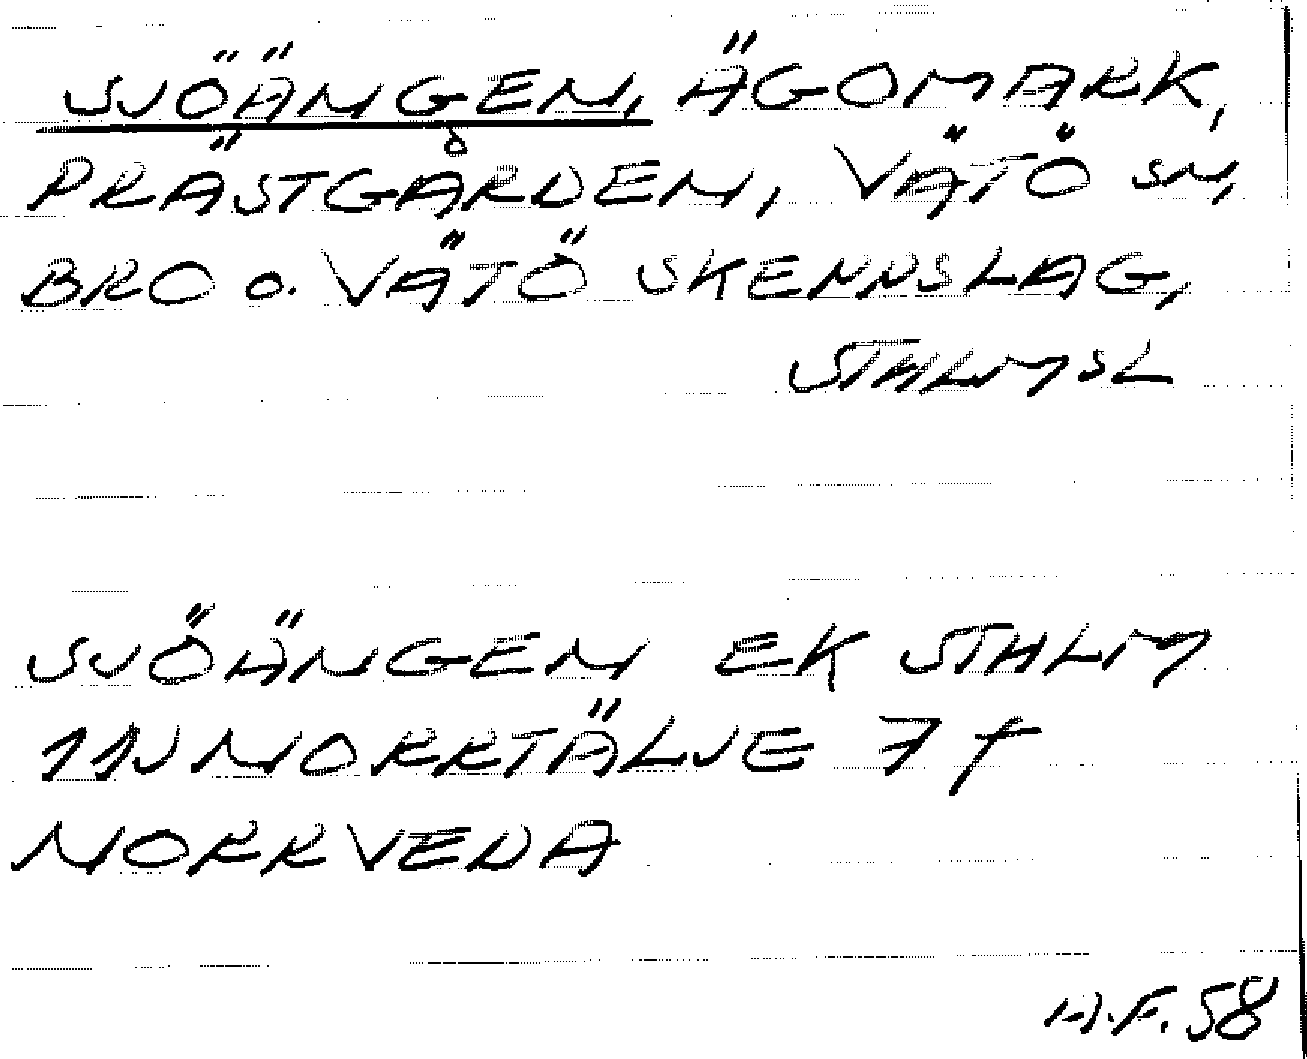 SJÖÄNGEN, ÄGOMARK,
PRÄSTGÅRDEN, VÄTÖ SN,
BRO o. VÄTÖ SKEPPSLAG,
STHLMS L
SJÖÄNGEN EK STHLM
11J NORRTÄLJE 7 f
NORRVEDA
H.F. 58